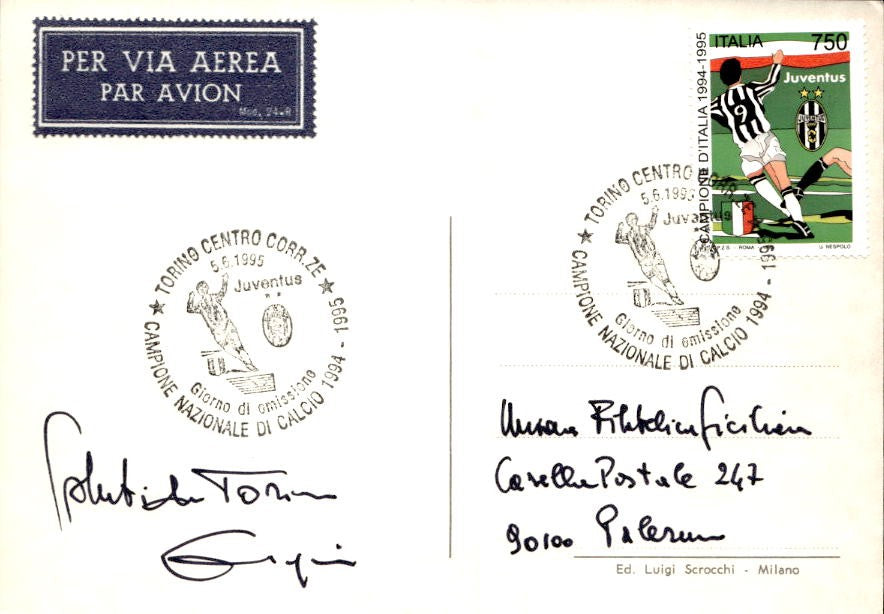 PER VIA AEREA
PAR AVION
Mod. 24-R
ITALIA 750
CAMPIONE D'ITALIA 1994-1995
Juventus
JUVENTUS
9
I.P.Z.S. - ROMA
U. NESPOLO
TORINO CENTRO CORR.ZE
5.6.1995
Juventus
Giorno di emissione
CAMPIONE NAZIONALE DI CALCIO 1994 - 1995
TORINO CENTRO CORR.ZE
5.6.1995
Juventus
Giorno di emissione
CAMPIONE NAZIONALE DI CALCIO 1994 - 1995
Saluti da Torino
Unione Filatelica Siciliana
Casella Postale 247
90100 Palermo
Ed. Luigi Scrocchi - Milano